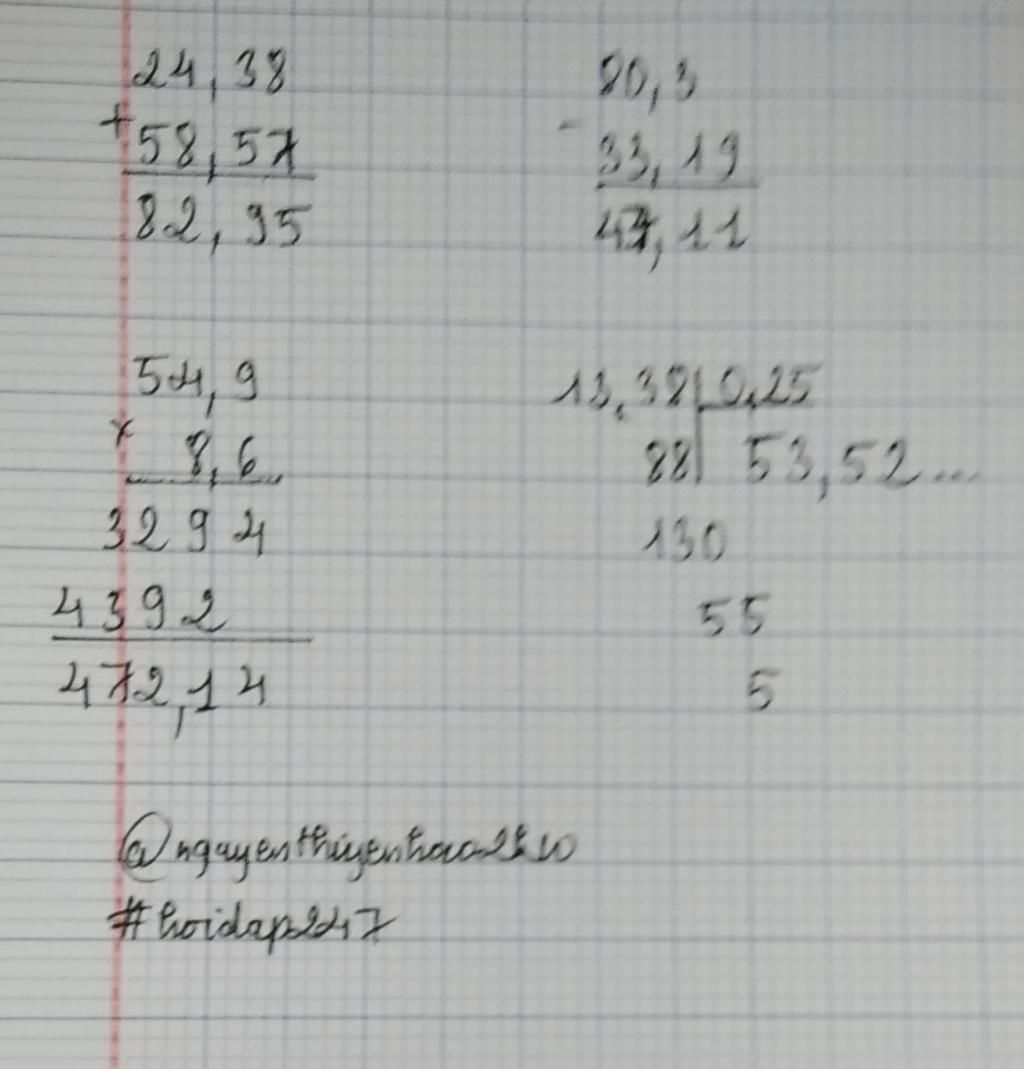 24,38
+
58,57
82,95
80,3
-
33,19
47,11
54,9
x
8,6
3294
4392
472,14
13,38 0,25
88 53,52...
130
55
5
#hoidap247